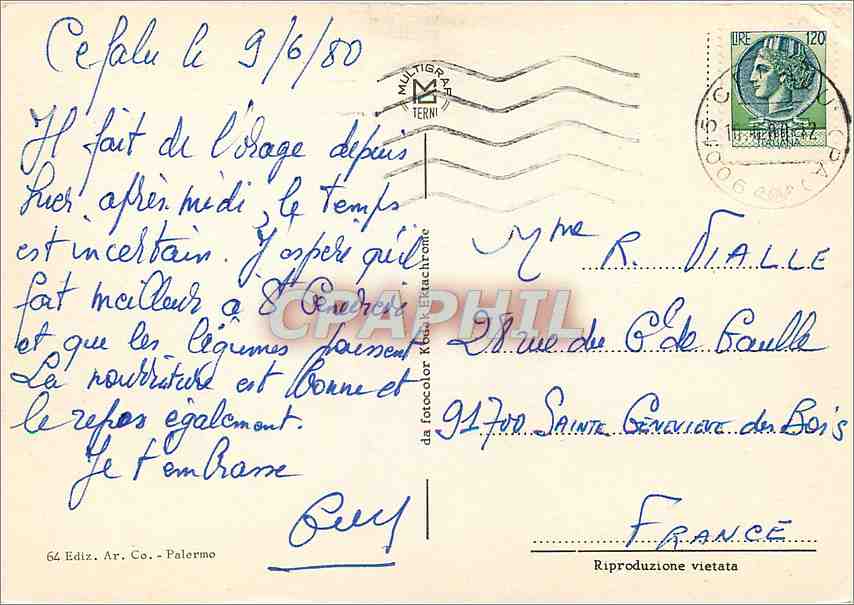 Cefalu le 9/6/80
Il fait de l'orage depuis
hier après midi, le temps
est incertain. J'espère qu'il
fait meilleur à Ste Geneviève
et que les légumes poussent
La nourriture est bonne et
le repos également.
Je t'embrasse
64 Ediz. Ar. Co. - Palermo
MULTIGRAF
TERNI
da fotocolor Kodak Ektachrome
CPAPHIL
LIRE 120
ITALIANA
90015
Mme R. VIALLE
28 rue du Gl de Gaulle
91700 SAINTE GENEVIEVE des Bois
FRANCE
Riproduzione vietata